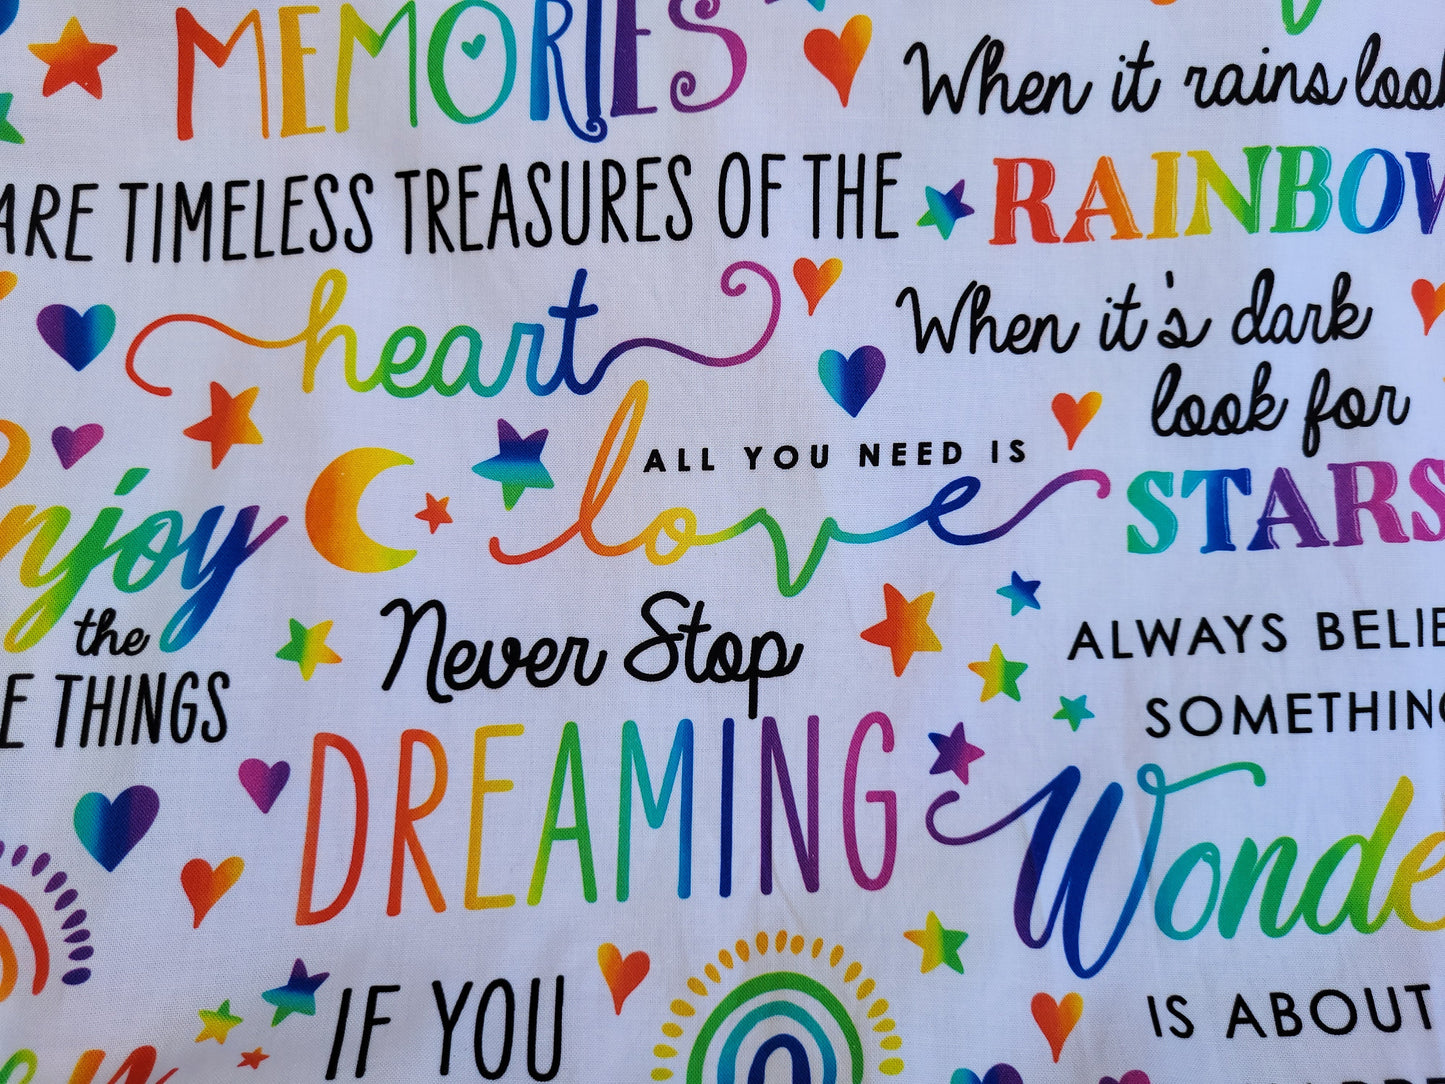 MEMORIES
ARE TIMELESS TREASURES OF THE
heart
When it rains look
RAINBOW
When it's dark
look for
STARS
ALL YOU NEED IS
love
Enjoy
the
E THINGS
Never Stop
DREAMING
ALWAYS BELIE
SOMETHING
Wonde
IS ABOUT
IF YOU